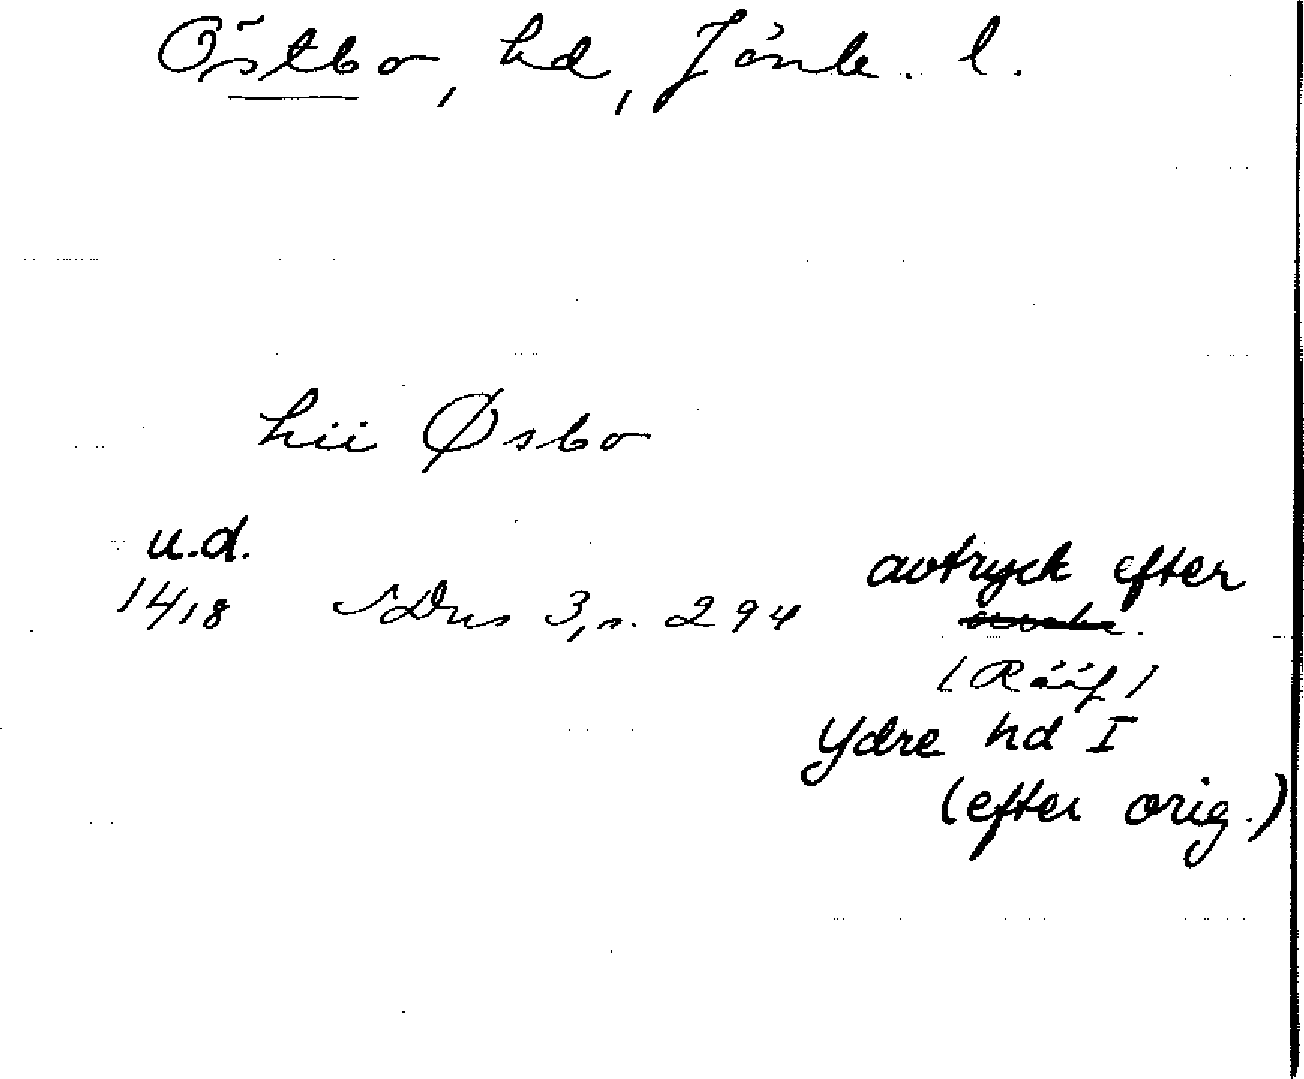 Östbo, hd, Jönk. l.
hii Øsbo
u.d.
1418 SDns 3, s. 294 avtryck efter
(Rääf)
Ydre hd I
(efter orig.)